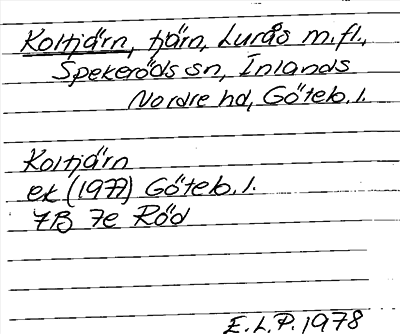 Koltjärn, tjärn, Lurås m.fl.,
Spekeröds sn, Inlands
Nordre hd, Göteb. l.
Koltjärn
ek (1977) Göteb. l.
7B 7e Röd
E.L.P. 1978